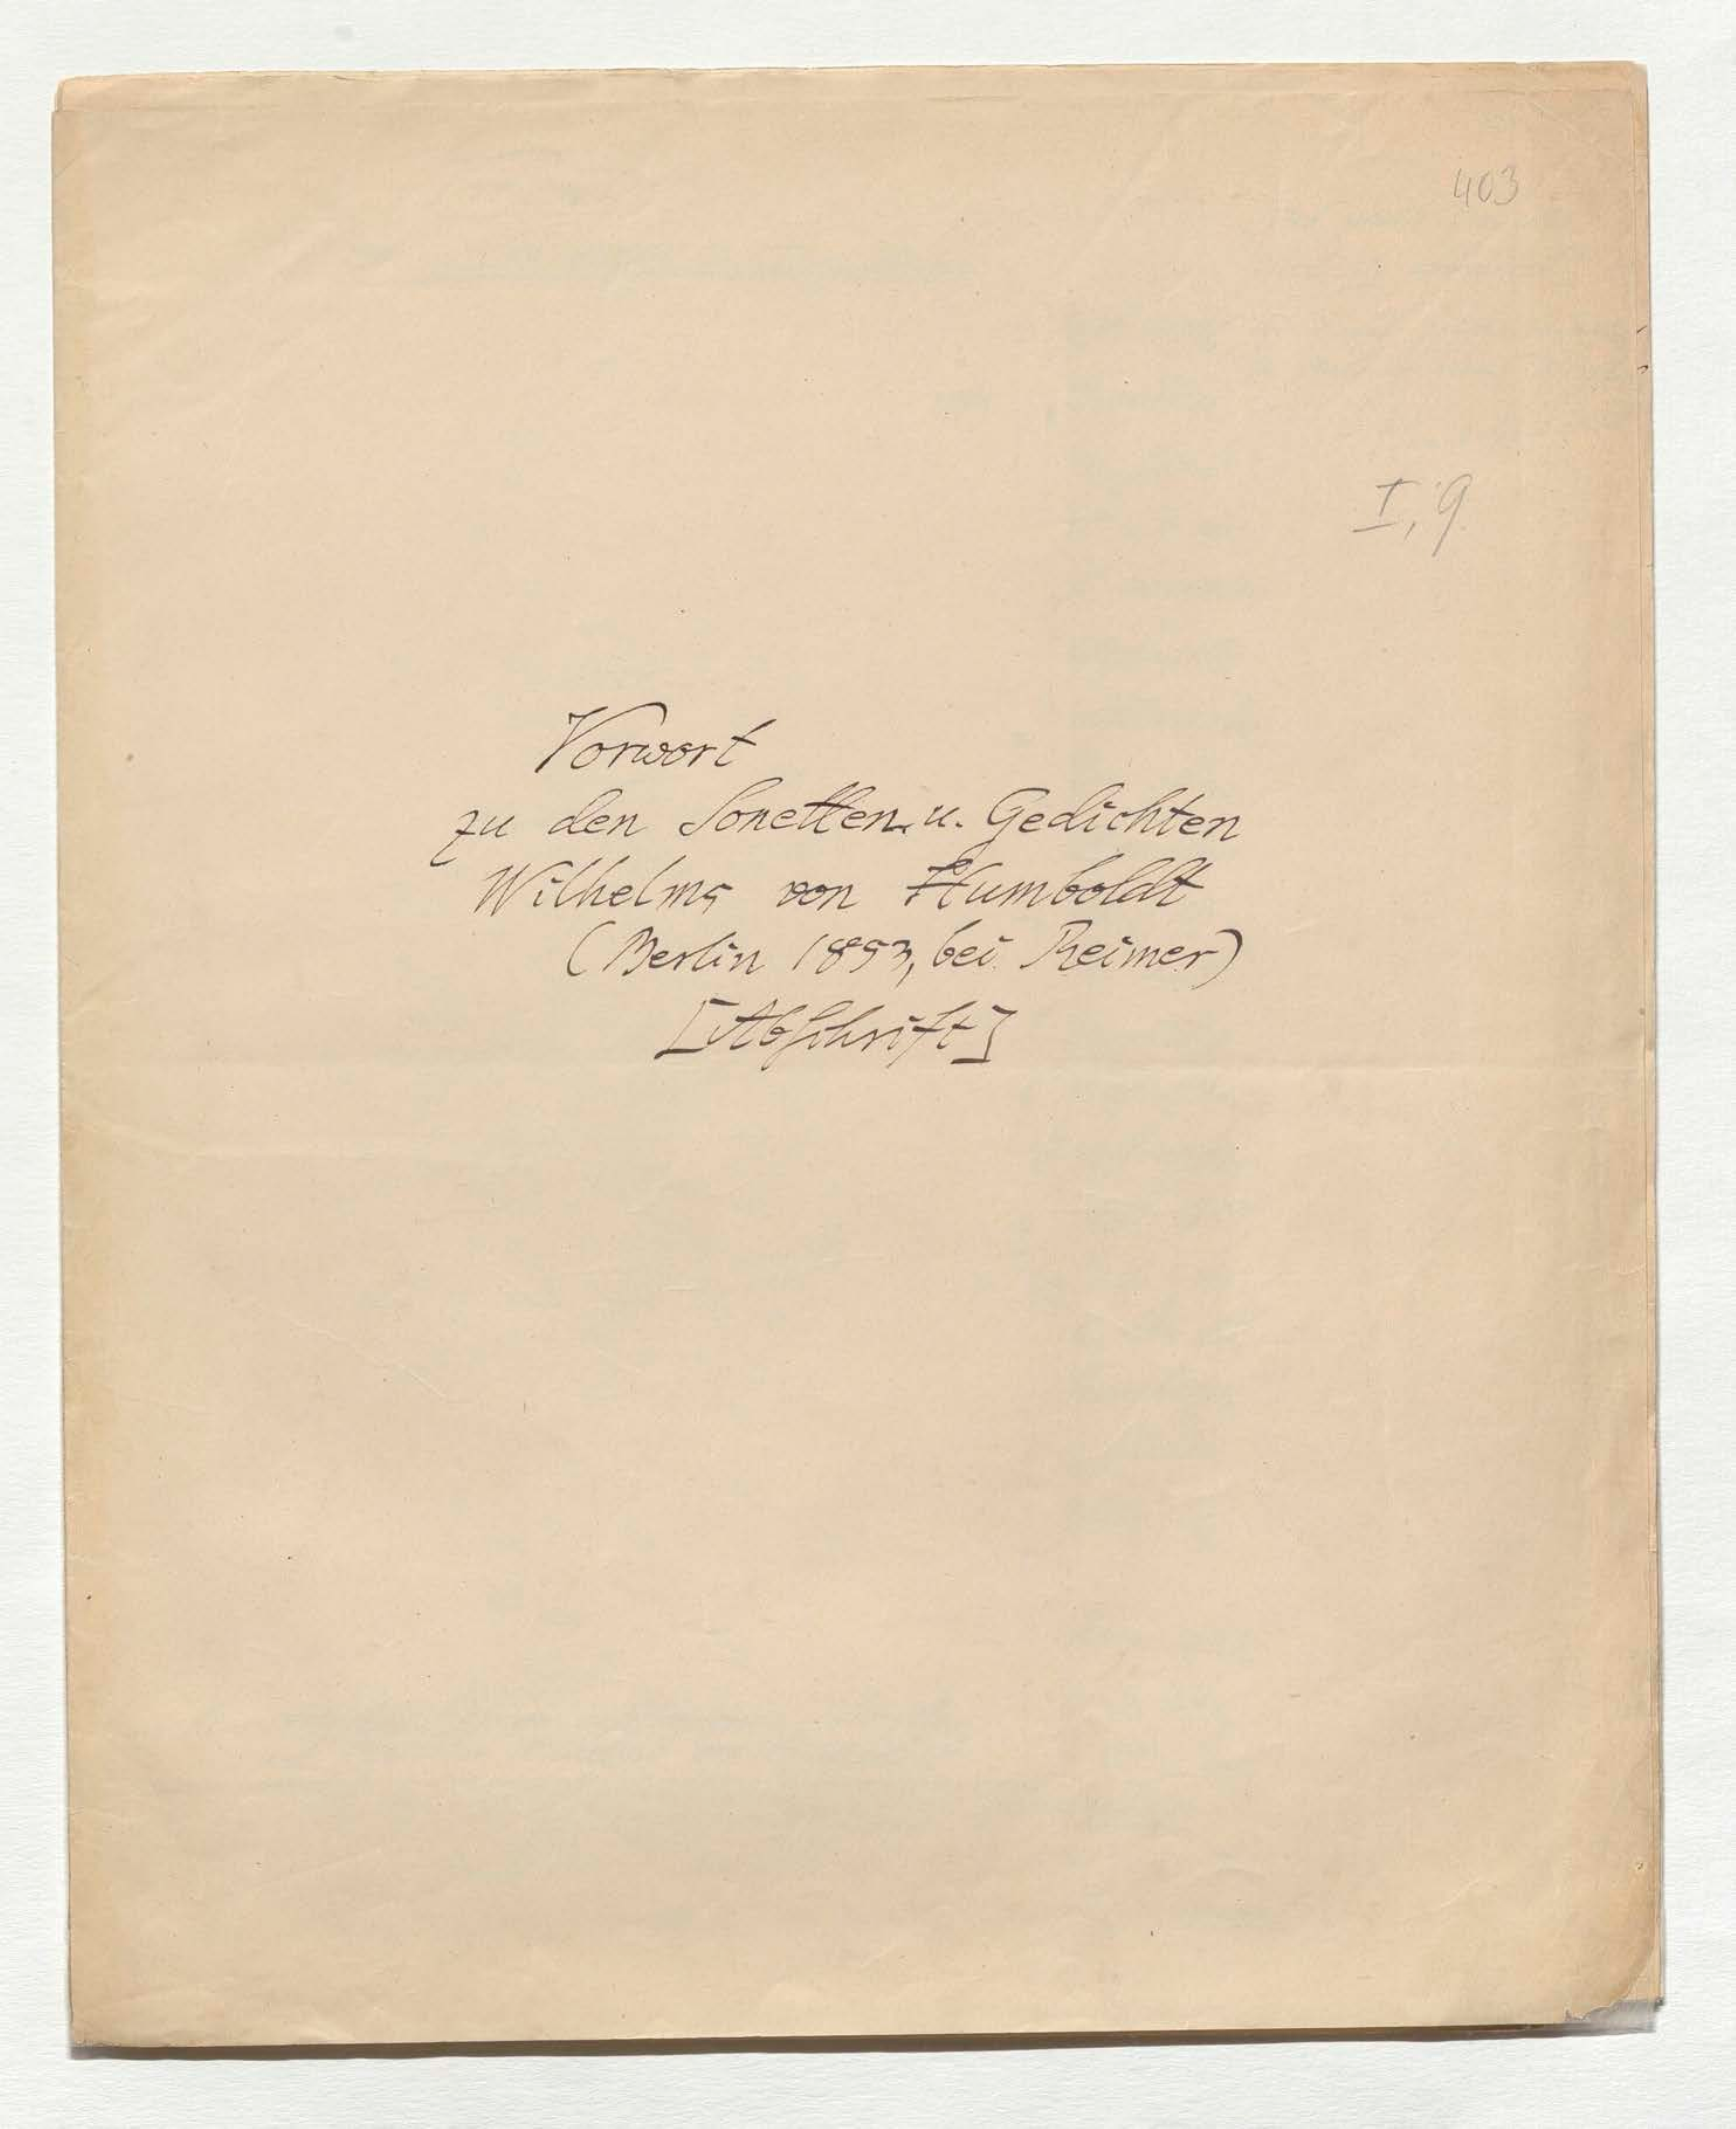 403
I, 9.
Vorwort
zu den Sonetten u. Gedichten
Wilhelms von Humboldt
(Berlin 1853, bei Reimer)
[Abschrift]